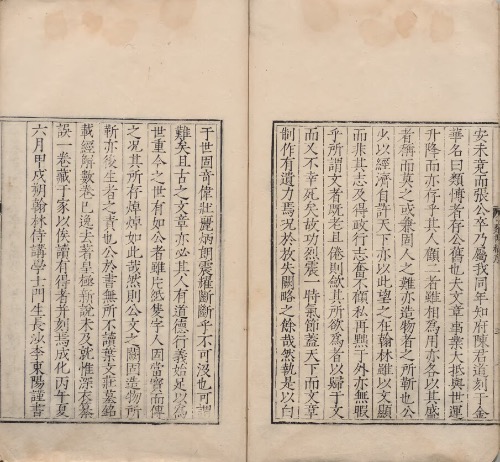 安未竟而張公卒乃屬我同年知府陳君道刻于金
華名曰類博者存公舊也夫文章事業大抵與世運
升降而亦存乎其人顧二者雖相為用亦各以其盛
者稱而莫之或兼固人之難亦造物者之所靳也公
少以經濟自許天下亦以此望之在翰林雖以文顯
而非其志及得政行志奮不顧私再黜于外亦無暇
乎所謂文者既老且倦則斂其所欲為者以歸于文
而又不幸死矣故功烈震一時氣節蓋天下而文章
制作有遺力焉況於放失闕略之餘哉然執是以白
于世固奇偉壯麗炳朗震耀斷斷乎不可沒也可謂
難矣且古之文章亦必其人有道德行義始足以為
世重今之世有如公者雖片紙隻字人固當寶而傳
之況其所存焯焯如此哉然則公文之闕固造物所
靳亦後生者之責也公於書無所不讀葉文莊墓銘
載經解數卷已逸去著皇極新說未及就惟深衣纂
誤一卷藏于家以俟讀有得者并刻焉成化丙午夏
六月甲戌朔翰林侍講學士門生長沙李東陽謹書